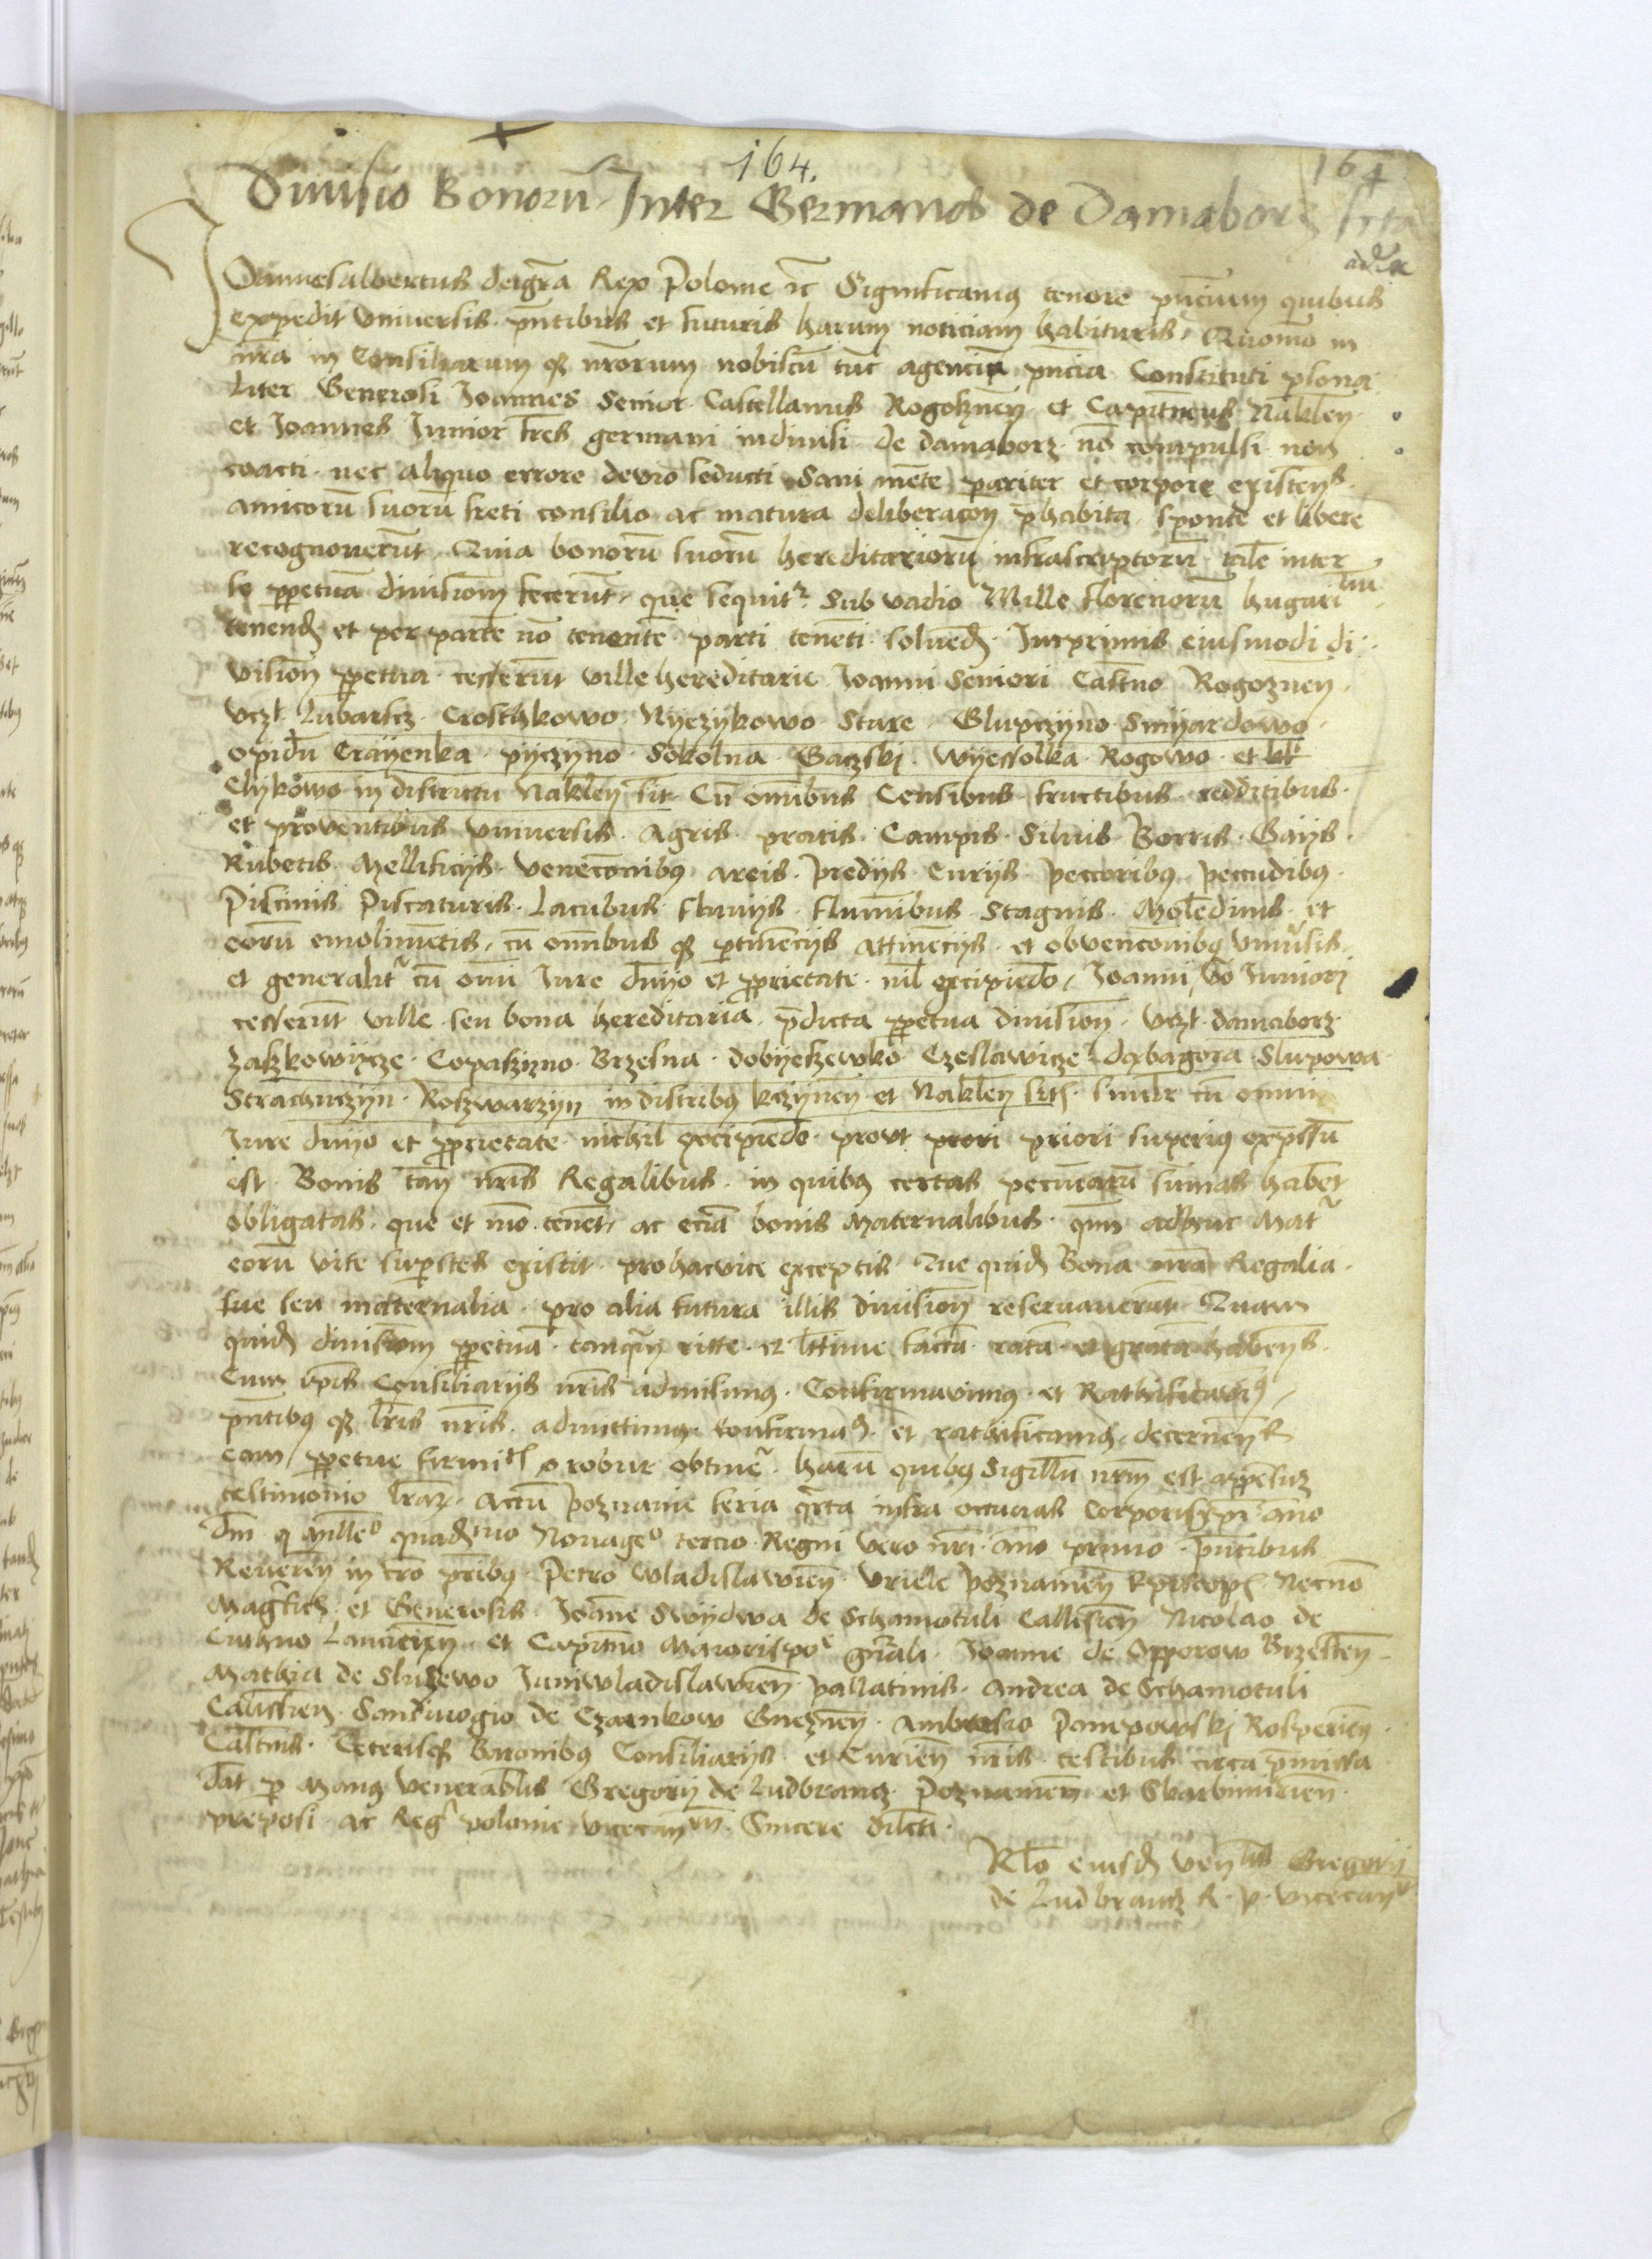 164.
164
Diuisio Bonorū Inter Germanos de Damaborz fcta
Joannes albertus dei grā Rex Polonie ꝛc Significamus tenore pn̄cium quibus
expedit vniuersis pn̄tibus et futuris harum noticiam habituris Quomō in
nr̄a in Consiliarum qꝫ nr̄orum nobiscū tūc agenciū pn̄cia Constituti p̱sona
liter Generosi Joannes Senior Castellanus Rogoznen̄ et Capitn̄eus Naklen̄
et Joannes Junior fr̄es germani indiuisi de damaborz nō compulsi non
coacti nec aliquo errore deuio seducti Sani mēte pariter et corpore existen̄s
amicorū suorū freti consilio ac matura deliberacōn p̄habita sponte et libere
recognouerūt Quia bonorū suorū hereditariorū infrascriptorū tale inter
se p̱petuā diuisionē fecerūt que sequitr Sub vadio Mille florenorū hugari
tenend̄ et per partē nō tenentē parti tenēti soluēd̄ Inprimis eiusmodi di
uision̄ p̱petua cesserūt ville hereditarie Joanni Seniori Castn̄o Rogoznen̄
vczt Lubarscz Crosthkowo Nyezykowo Stare Glupczyno Smyardowo
opidū Crayenka pyczyno Sokolna Gaczskj Wyessolka Rogowo et
Clykowo in districtu Naklen̄ sit Cū om̄ibus Censibus fructibus redditibus
et prouentibus vniuersis Agris pratis Campis Siluis Borris Gayis
Rubetis Mellificijs venecōnibꝫ areis predijs Curijs peccoribꝫ peccudibꝫ
Piscinis Piscaturis Lacubus fluuijs flum̄ibus Stagnis Molēdinis et
eorū emolumētis cū om̄ibus qꝫ p̱tinēcijs attinēcijs et obvencōnibꝫ vniuersis
et generalitr cū om̄i Jure dn̄ijo et p̱prietate nil excipiēdo Joanni vo Juniorj
cesserūt ville seu bona hereditaria p̄dicta p̱petua diuision̄ vczt damaborz
Zaszkowijcze Copaszyno Brzesna dobyeszewko Czeslawicze dąbagora Slupowa
Strachuczyn Roszwarzyn in distribꝫ kczynen̄ et Naklen̄ sit simlr cū omni
Jure dn̄ijo et p̱prietate nichil excipiēdo prout priori superiꝫ exp̄ssū
est Bonis tn̄ nr̄is Regalibus in quibꝫ certas pecuniarū sūmas habēt
obligatas que et mō tenēt ac eciā bonis Maternalibus qm̄ adhuc Matr
eorū vite sup̱stes existit pro hac vice exceptis Que quid̄ Bona nr̄a Regalia
sue seu maternalia pro alia futura illis diuision̄ reseruauerūt Quam
quid̄ diuisionem p̱petuā tanqm̄ ritte et lttime factā ratā et gratā haben̄s
Cum ip̄is Consiliarijs nr̄is admisimꝫ Confirmauimꝫ et Rathificauimꝫ
pn̄tibꝫ qꝫ lr̄is nr̄is admittimꝫ confirmaꝫ et rathificamꝫ decernen̄
eam p̱petue firmits robur obtinere harū quibꝫ Sigillū nr̄m est appēsuꝫ
testimonio lr̄aꝝ Actū Poznanie feria qr̄ta infra octauas Corporis xp̄i āno
dn̄i Milleo quad̄no Nonageo tercio Regni vero nr̄i āno primo pn̄tibus
Reueren̄ in cro pr̄ibꝫ Petro Wladislawien̄ Vriele Poznanien̄ Ep̄iscop̄ Necnō
Magficis et Generosis Joāne Swydwa de Schamotuli Callisien̄ Nicolao de
Cuthno Lancicien̄ et Capitn̄o Maiorispoe gn̄rali Joanne de Opporow Brzesten̄
Mathia de Sluzewo Juniwladislawien̄ pallatinis Andrea de Schamotuli
Calissien̄ Sandiuogio de Czarnkow Gneznen̄ Ambrosio Pampowskj Rosperien̄
Castn̄is Ceterisqꝫ Baronibꝫ Consiliarijs et Curien̄ nr̄is testibus circa p̄missa
Dat̄ p̱ Manꝫ venerablis Gregorij de Ludbrancz Poznanien̄ et Skarbimirien̄
preposi ac Regi polonie vicecanrij Sincere dilcti
Rlo eiusd̄ venlis Gregorij
de Ludbrancz R. p. vicecanr